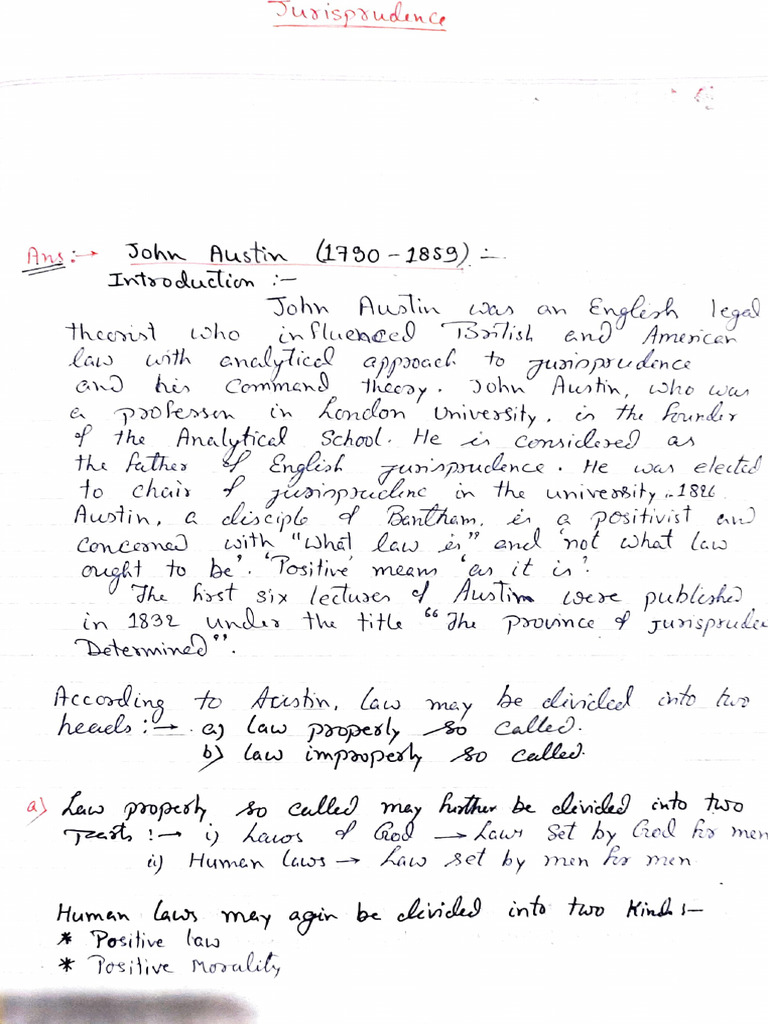 Jurisprudence
Ans:→ John Austin (1790 - 1859) :-
Introduction :-
John Austin was an English legal
theorist who influenced British and American
law with analytical approach to jurisprudence
and his command theory. John Austin, who was
a professor in London University, is the founder
of the Analytical School. He is considered as
the father of English jurisprudence. He was elected
to chair of jurisprudenc in the university in 1826.
Austin, a disciple of Bantham, is a positivist and
concerned with "what law is" and 'not what law
ought to be'. 'Positive' means 'as it is'.
The first six lectures of Austin were published
in 1832 under the title "The province of jurisprude
Determined".
According to Austin, law may be divided into two
heads :→ a) law properly so called.
b) law improperly so called.
a) Law properly so called may further be divided into two
Parts :→ i) Laws of God → Laws Set by God for men
ii) Human laws → Law set by men for men
Human laws may agin be divided into two Kinds :-
* Positive law
* Positive Morality